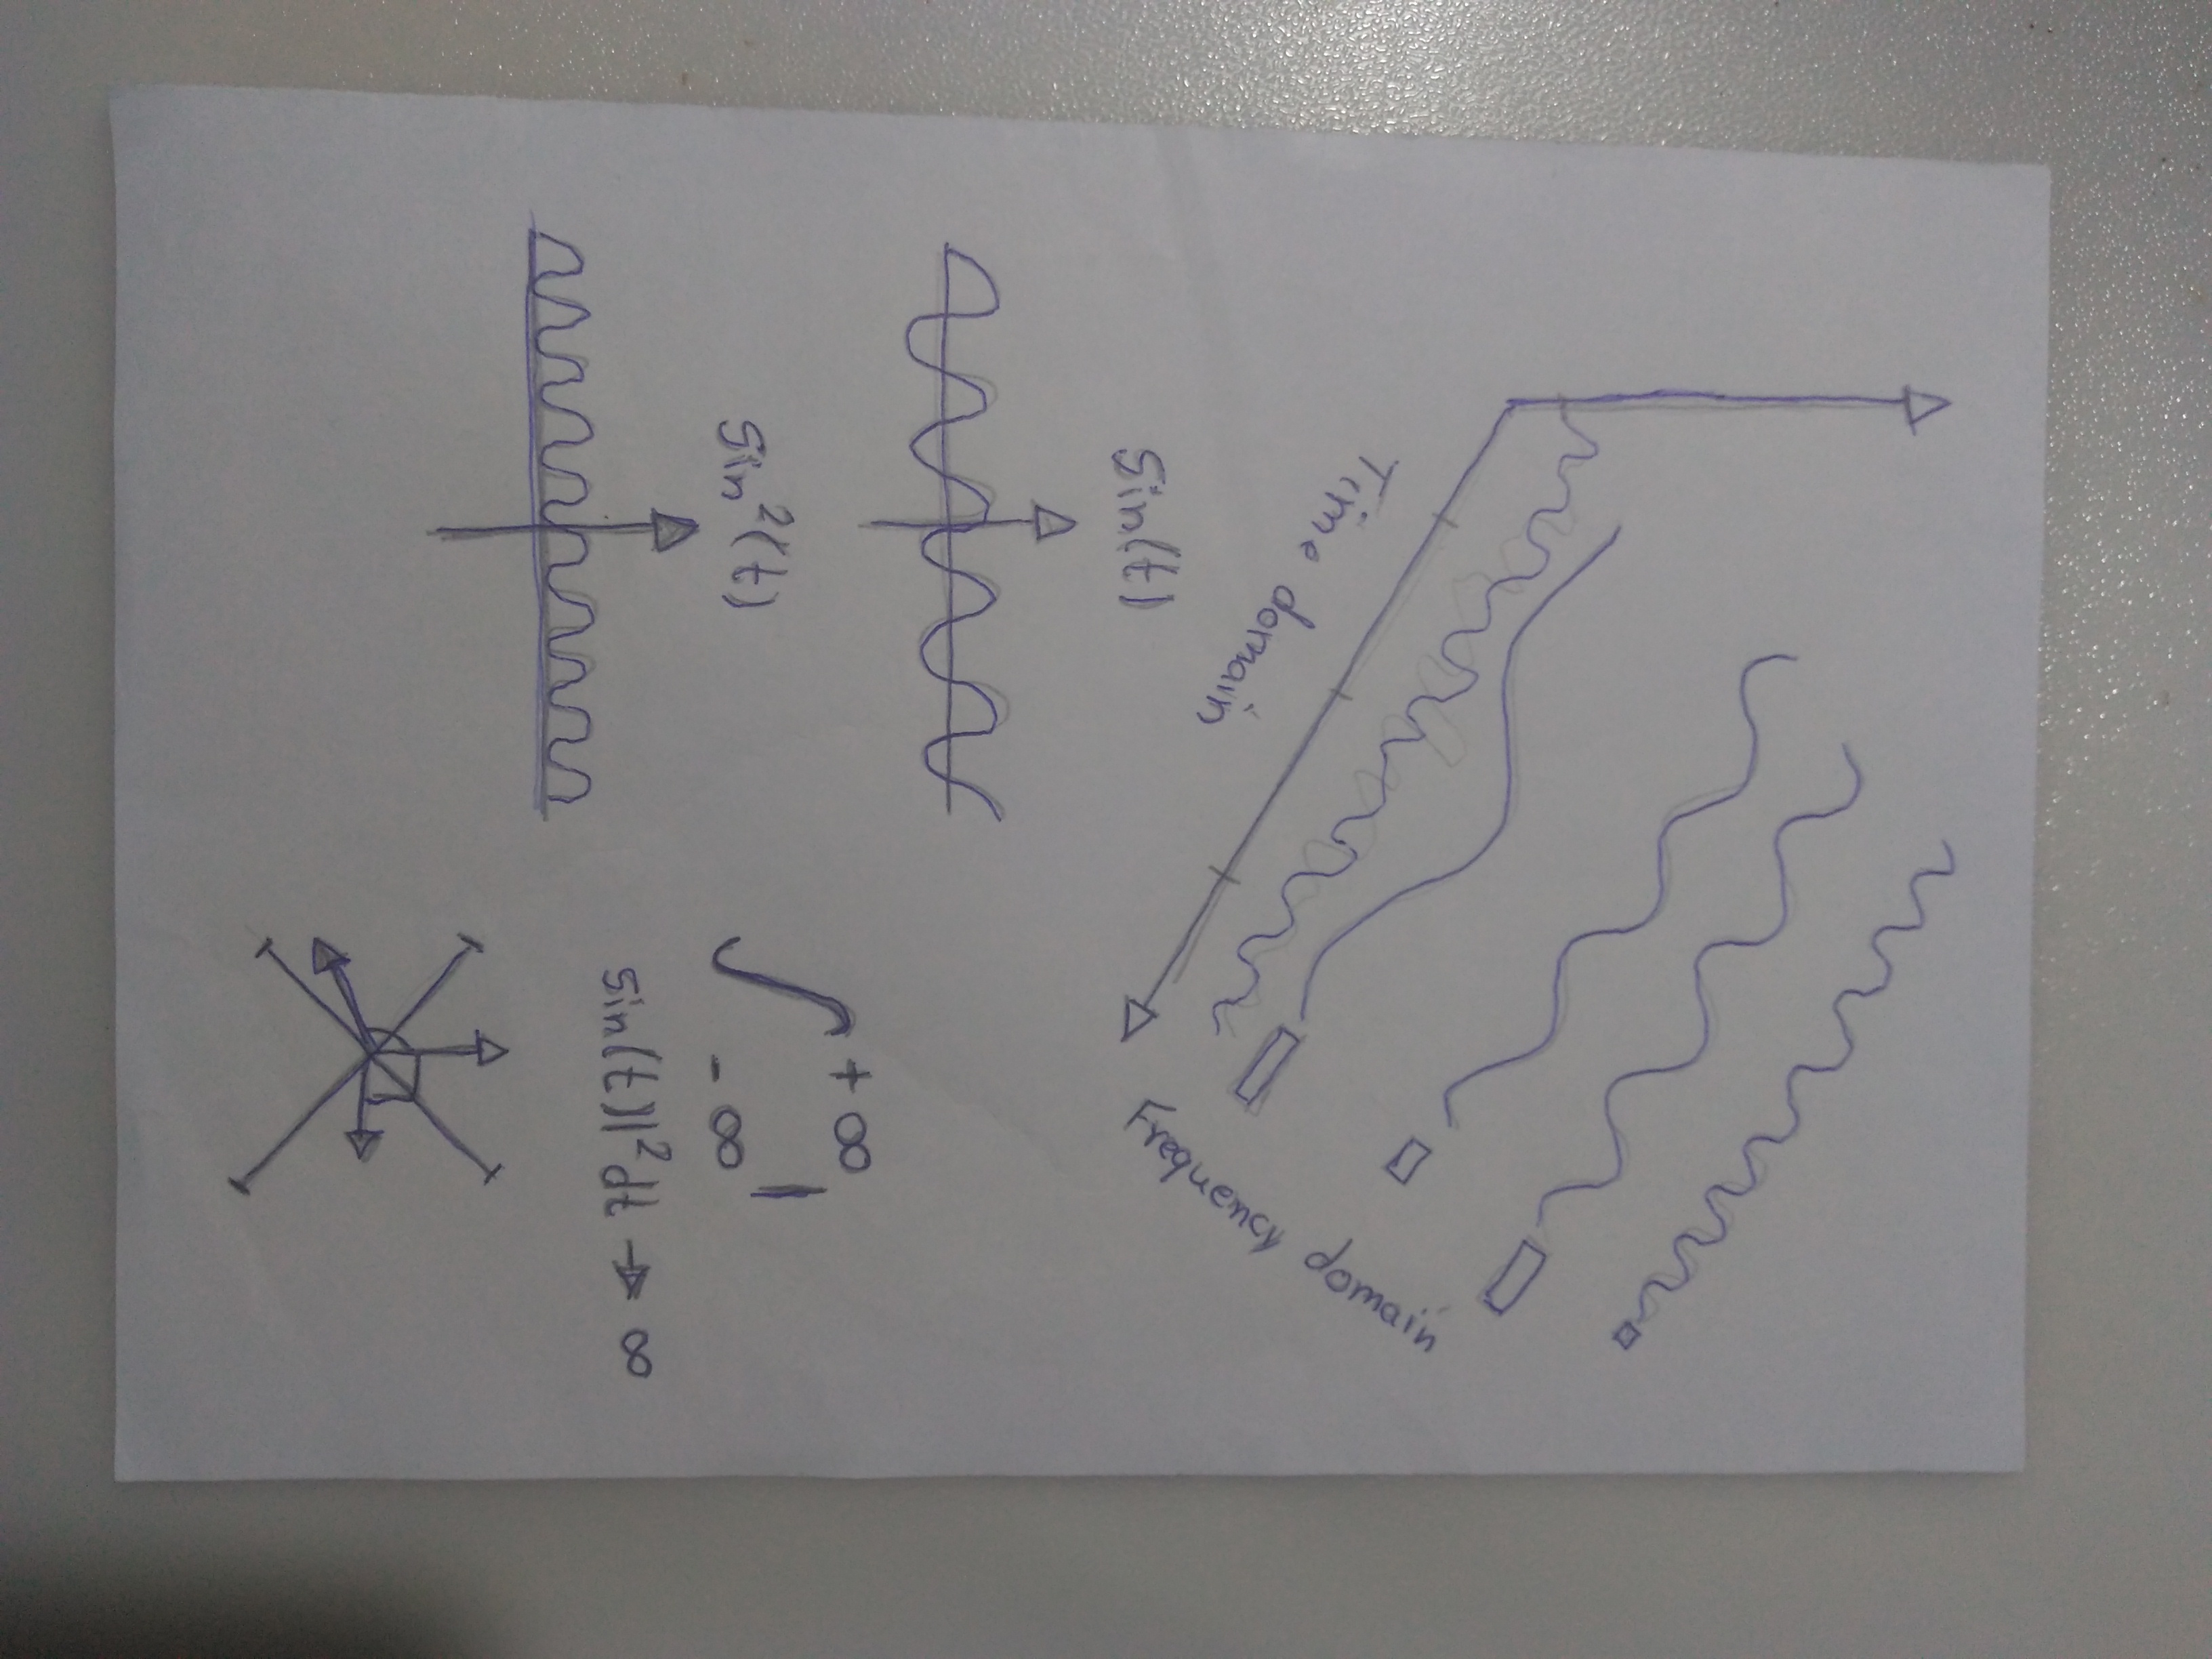 Time domain
Frequency domain
Sin(t)
Sin²(t)
∫ +∞
-∞ |
sin(t)|²dt → ∞